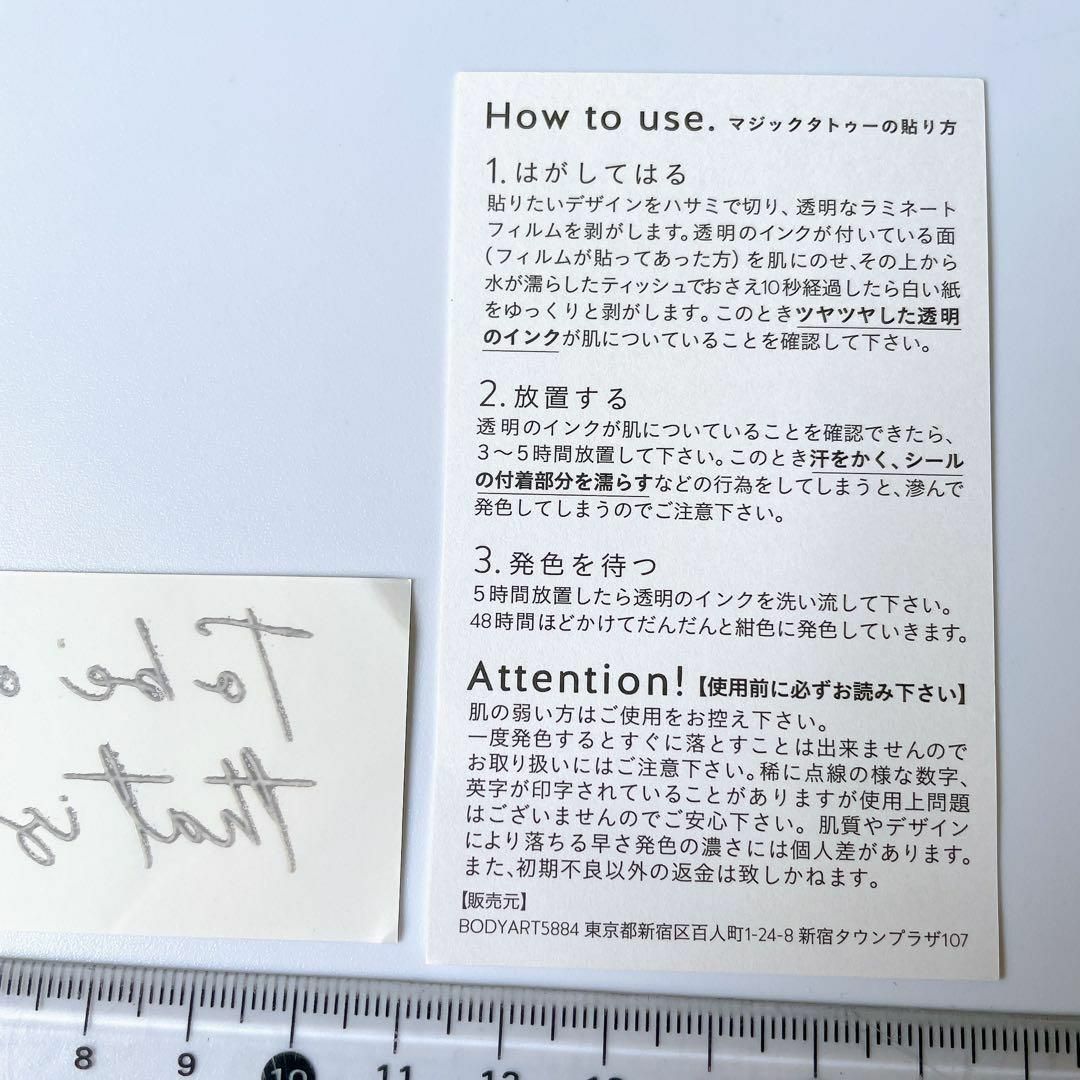 How to use. マジックタトゥーの貼り方
1. はがしてはる
貼りたいデザインをハサミで切り、透明なラミネート
フィルムを剥がします。透明のインクが付いている面
（フィルムが貼ってあった方）を肌にのせ、その上から
水が濡らしたティッシュでおさえ10秒経過したら白い紙
をゆっくりと剥がします。このときツヤツヤした透明
のインクが肌についていることを確認して下さい。
2. 放置する
透明のインクが肌についていることを確認できたら、
3〜5時間放置して下さい。このとき汗をかく、シール
の付着部分を濡らすなどの行為をしてしまうと、滲んで
発色してしまうのでご注意下さい。
3. 発色を待つ
5時間放置したら透明のインクを洗い流して下さい。
48時間ほどかけてだんだんと紺色に発色していきます。
Attention!【使用前に必ずお読み下さい】
肌の弱い方はご使用をお控え下さい。
一度発色するとすぐに落とすことは出来ませんので
お取り扱いにはご注意下さい。稀に点線の様な数字、
英字が印字されていることがありますが使用上問題
はございませんのでご安心下さい。肌質やデザイン
により落ちる早さ発色の濃さには個人差があります。
また、初期不良以外の返金は致しかねます。
【販売元】
BODYART5884 東京都新宿区百人町1-24-8 新宿タウンプラザ107
To be o
that is
8 9 10 11 12